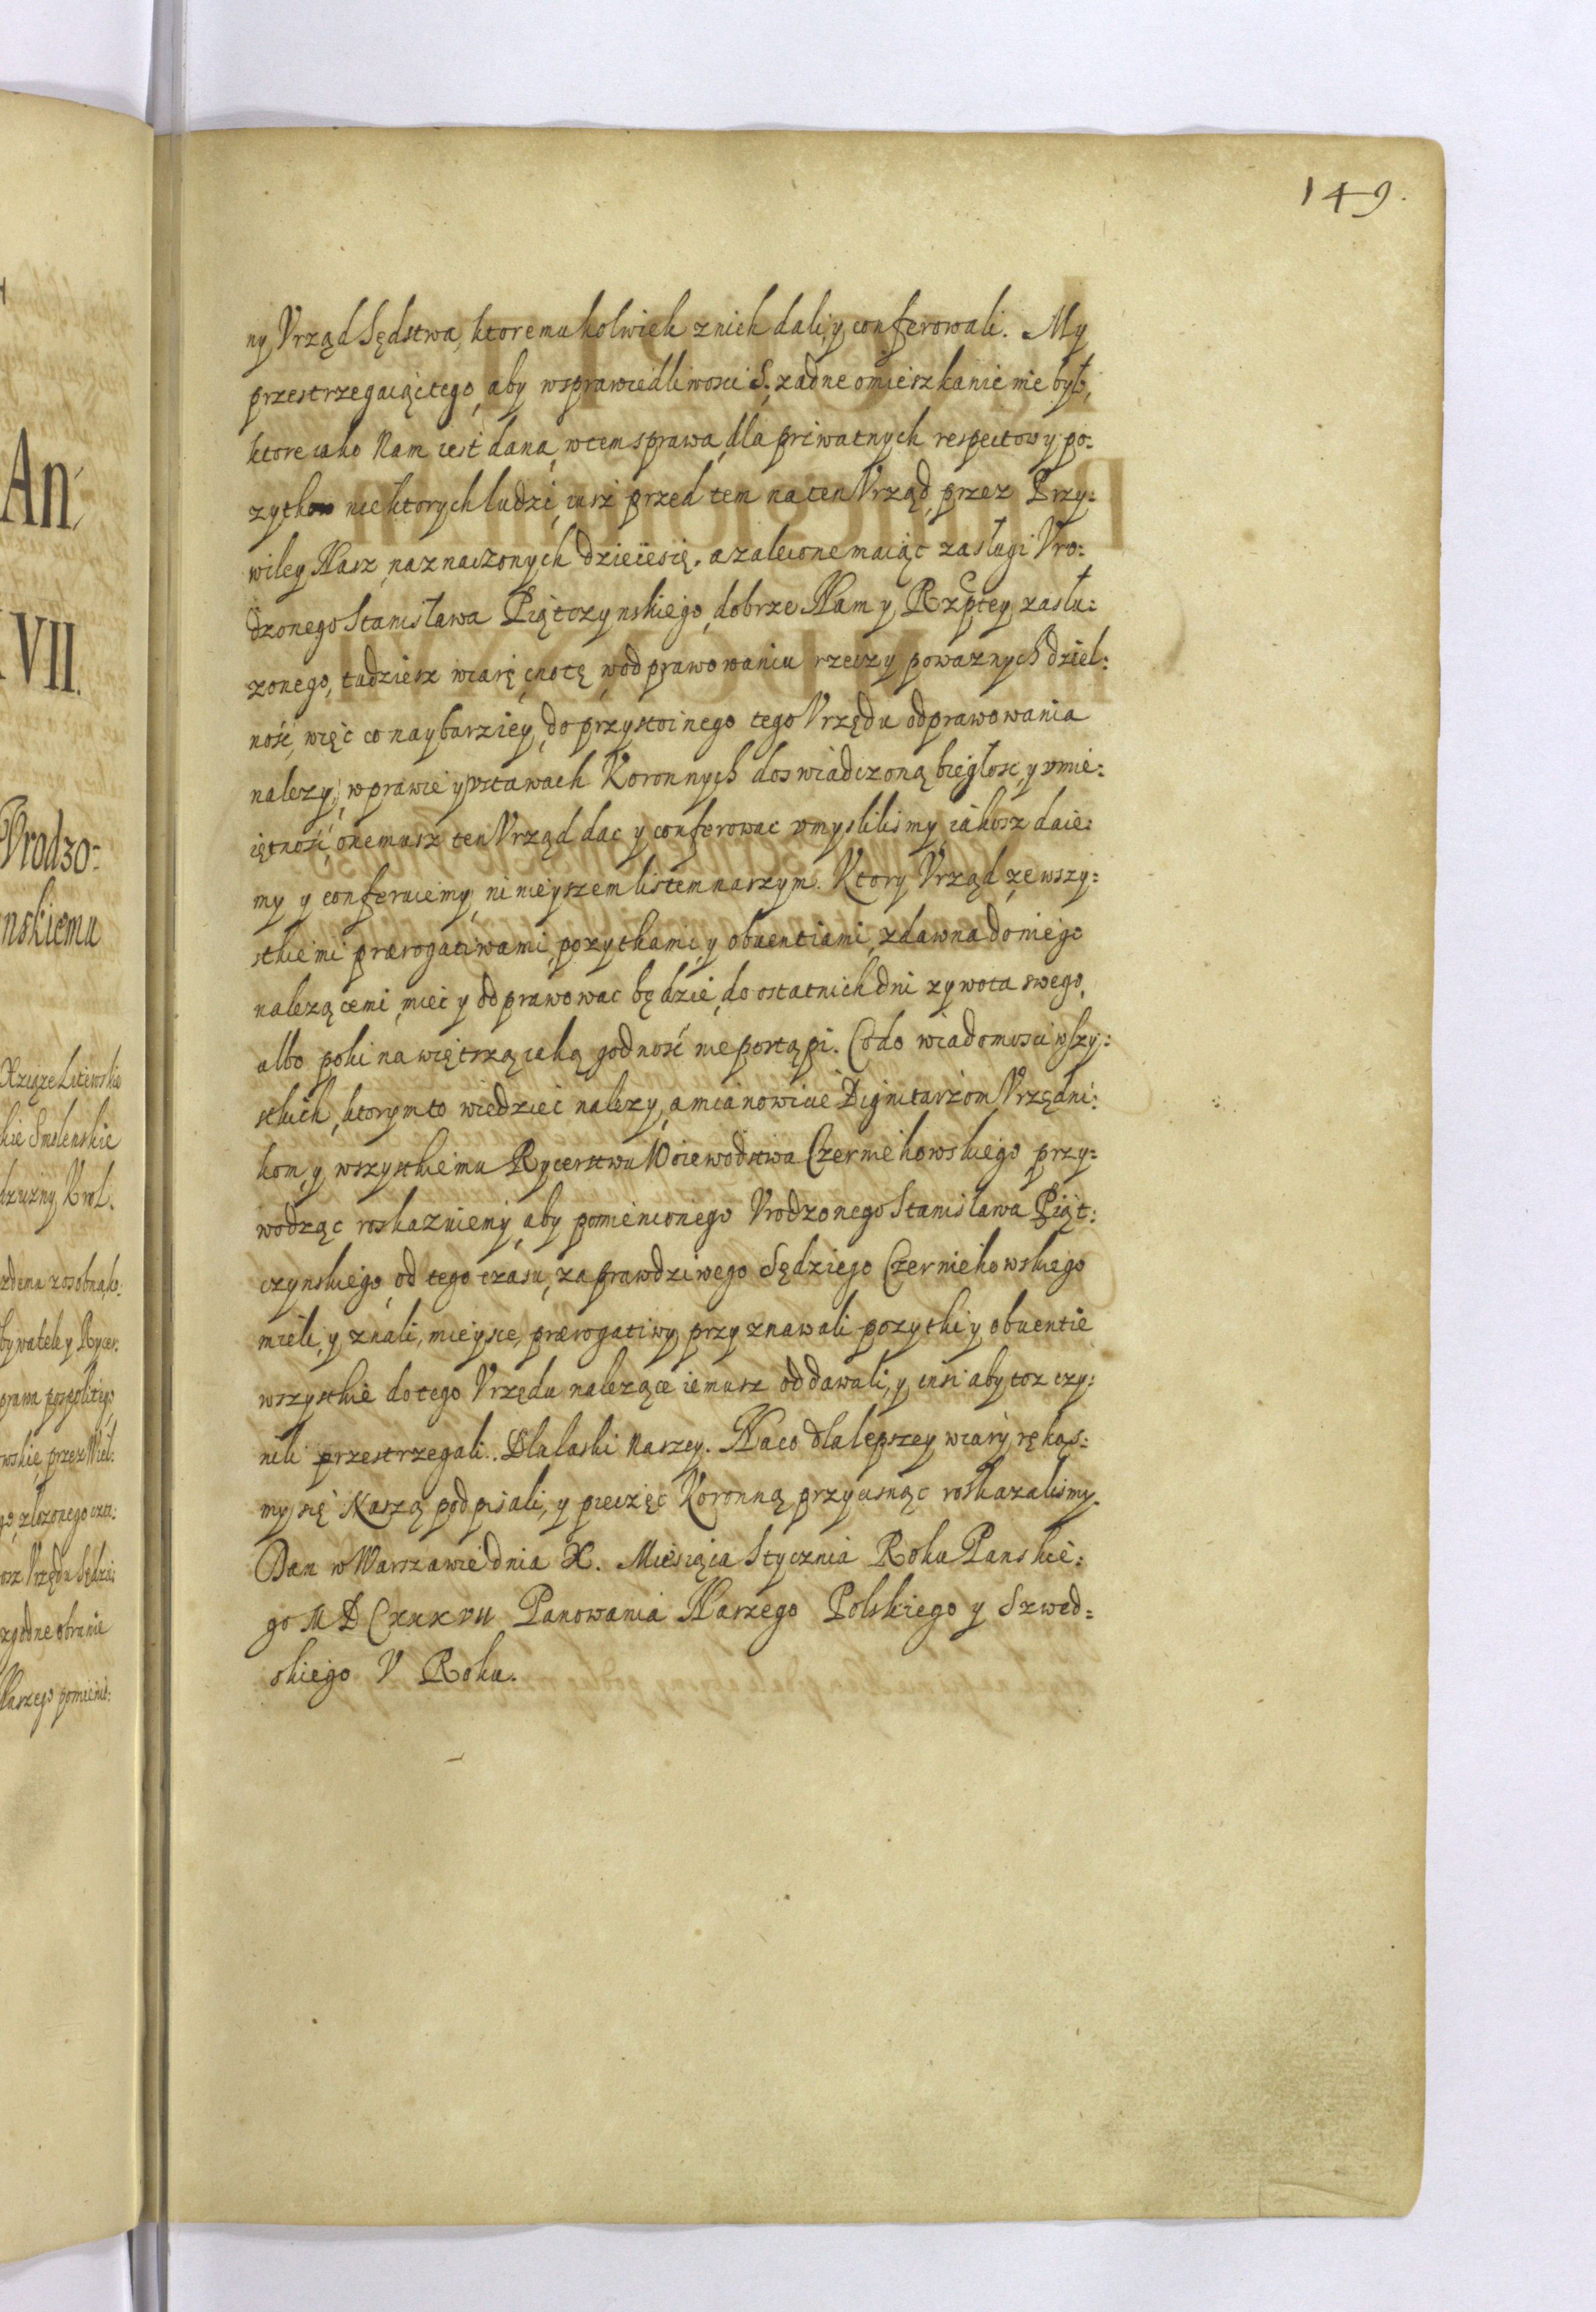 149.
ny Vrząd Sędstwa, ktoremukolwiek z nich dali, y conferowali. My
przestrzegaiącz tego, aby w sprawiedliwosci S. zadne omieszkanie nie było,
ktore iako Nam iest dana, w tem sprawa, dla priwatnych respectow y po-
zytkow niektorych ludzi, iusz przed tem na ten Vrząd, przez Przy-
wiley Nasz, naznaczonych dzieie się. a zalecone maiąc zasługi Vro-
dzonego Stanisława Piątczynskiego, dobrze Nam y Rzptey zasłu-
zonego, tudziesz wiarę, cnotę, w odprawowaniu rzeczy powaznych dziel-
ność, więc co naybarziey, do przystoinego tego Vrzędu odprawowania
nalezy, w prawie y vstawach Koronnych doswiadczoną biegłosc, y vmie-
iętność, onemusz ten Vrząd dac y conferowac vmyslilismy, iakosz daie-
my y conferuiemy, ninieyszem listem naszym. Ktory Vrząd, ze wszy-
stkiemi prærogatiwami, pozytkami, y obuentiami, zdawna do niego
nalezącemi, miec y odprawowac będzie, do ostatnich dni zywota swego,
albo poki na więtszą iaką godność nie postąpi. Co do wiadomosci wszy-
stkich, ktorym to wiedziec nalezy, a mianowicie Dignitarzom, Vrzędni-
kom, y wszystkiemu Rycerstwu Woiewodstwa Czerniehowskiego przy-
wodząc roskazuiemy, aby pomienionego Vrodzonego Stanisława Piąt-
czynskiego, od tego czasu, za prawdziwego Sędziego Czerniehowskiego
mieli, y znali, mieysce, prærogatiwy przyznawali pozytki y obuentie
wszystkie do tego Vrzędu nalezące iemusz oddawali, y inśi aby toz czy-
nili przestrzegali. Dla łaski Naszey. Na co dla lepszey wiary, rękąs-
my się Naszą podpisali, y pieczęc Koronną przycisnąc roskazalismy.
Dan w Warszawie dnia X. Miesiąca Stycznia Roku Panskie-
go MDCxxxvii Panowania Naszego Polskiego y Szwed-
skiego V Roku.
An
VII.
Vrodzo-
nskiemu
Xziąze Litewskie
kie Smolenskie
dziczny Krol.
bywatele y Rycer-
prawa pospolitego
wskie, przez Wiel-
go, złozonego
osz Vrzędu Sędzi-
zgodne obranie
Naszego pomienio-